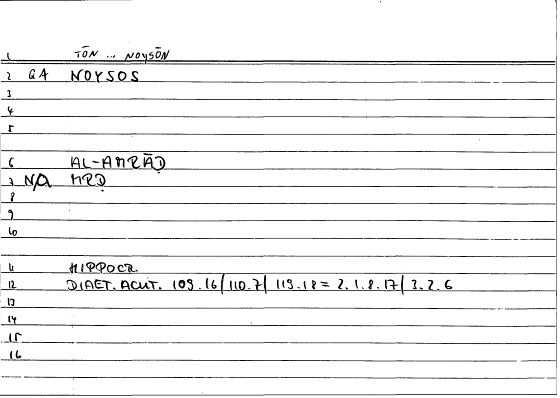 1 TŌN ... NOYSŌN
2 GA NOYSOS
3
4
5
6 AL-AMRĀḌ
7 N/A MRḌ
8
9
10
11 HIPPOCR.
12 DIAET. ACUT. 109.16 / 110.7 / 119.18 = 2.1. 8.17 / 3.2. 6
13
14
15
16